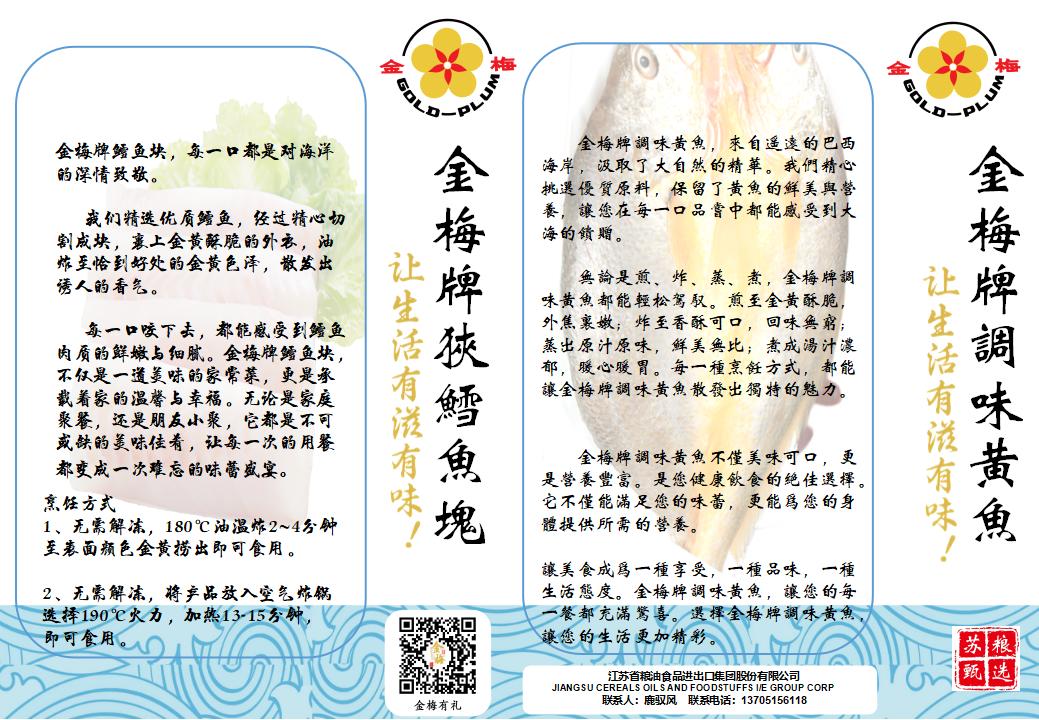 金 梅
GOLD-PLUM
金梅牌鳕鱼块，每一口都是对海洋
的深情致敬。
我们精选优质鳕鱼，经过精心切
割成块，裹上金黄酥脆的外衣，油
炸至恰到好处的金黄色泽，散发出
诱人的香气。
每一口咬下去，都能感受到鳕鱼
肉质的鲜嫩与细腻。金梅牌鳕鱼块，
不仅是一道美味的家常菜，更是承
载着家的温馨与幸福。无论是家庭
聚餐，还是朋友小聚，它都是不可
或缺的美味佳肴，让每一次的用餐
都变成一次难忘的味蕾盛宴。
烹饪方式
1、无需解冻，180℃油温炸2~4分钟
至表面颜色金黄捞出即可食用。
2、无需解冻，将产品放入空气炸锅
选择190℃火力，加热13-15分钟，
即可食用。
让生活有滋有味！
金梅牌狹鱈魚塊
金梅
金梅有礼
金 梅
GOLD-PLUM
金梅牌調味黃魚，來自遥遠的巴西
海岸，汲取了大自然的精華。我們精心
挑選優質原料，保留了黃魚的鮮美與營
養，讓您在每一口品嘗中都能感受到大
海的饋贈。
無論是煎、炸、蒸、煮，金梅牌調
味黃魚都能輕松駕馭。煎至金黃酥脆，
外焦裏嫩；炸至香酥可口，回味無窮；
蒸出原汁原味，鮮美無比；煮成湯汁濃
郁，暖心暖胃。每一種烹飪方式，都能
讓金梅牌調味黃魚散發出獨特的魅力。
金梅牌調味黃魚不僅美味可口，更
是營養豐富。是您健康飲食的絕佳選擇。
它不僅能滿足您的味蕾，更能爲您的身
體提供所需的營養。
讓美食成爲一種享受，一種品味，一種
生活態度。金梅牌調味黃魚，讓您的每
一餐都充滿驚喜。選擇金梅牌調味黃魚，
讓您的生活更加精彩。
让生活有滋有味！
金梅牌調味黃魚
江苏省粮油食品进出口集团股份有限公司
JIANGSU CEREALS OILS AND FOODSTUFFS I/E GROUP CORP
联系人：鹿驭风 联系电话：13705156118
苏粮
甄选